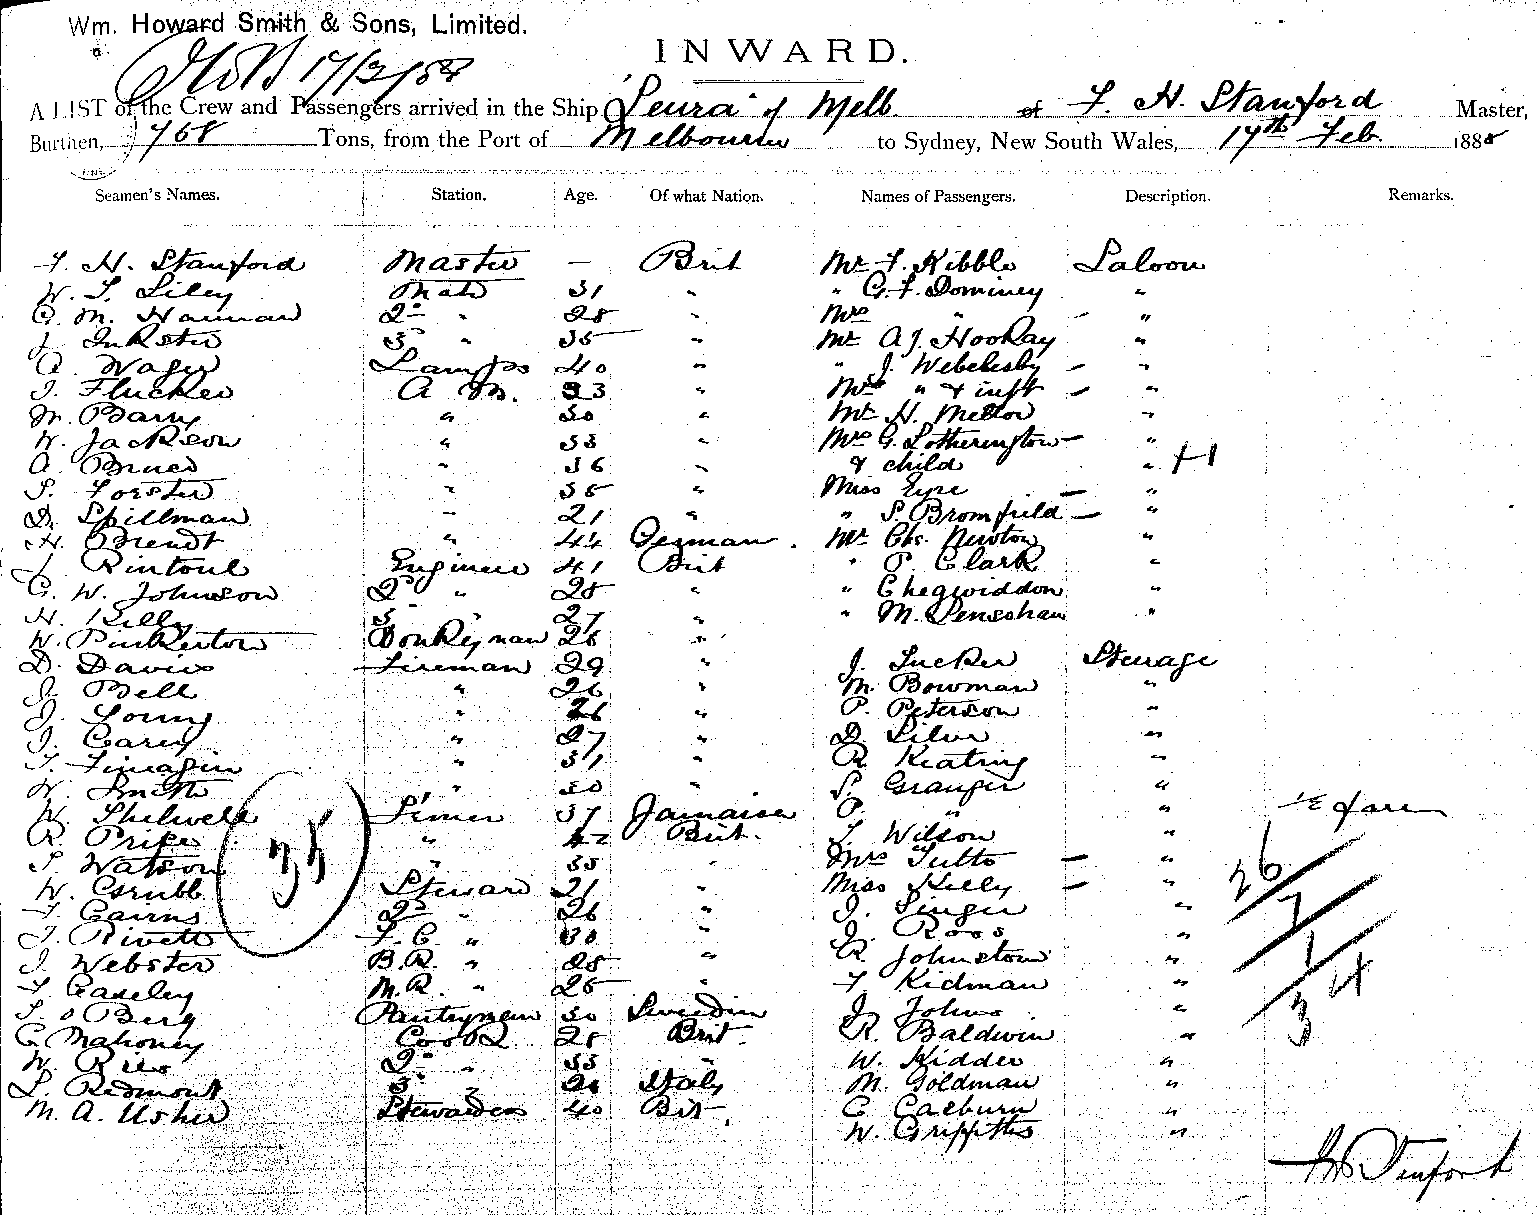 Wm. Howard Smith & Sons, Limited.
INWARD.
17/2/88
A LIST of the Crew and Passengers arrived in the Ship "Leura" of Melb. of F. H. Stanford Master,
Burthen, 768 Tons, from the Port of Melbourne to Sydney, New South Wales, 17th Feb. 1888
Seamen's Names. Station. Age. Of what Nation. Names of Passengers. Description. Remarks.
F. H. Stanford Master — Brit Mr F. Kibble Saloon
W. T. Liley Mate 31 " " G. F. Dominey "
C. M. Hannan 2nd " 28 " Mrs " "
J. Inkster 3 " 35 " Mr A. J. Hookay "
A. Wager Lamps 40 " " J. "
J. Flucker A. B. 23 " Mrs " & inft "
M. Barry " 30 " Mr H. Mellor "
W. Jackson " 33 " Mrs G. Lotherington "
A. Bruce " 36 " & child " +1
S. Forster " 35 " Miss Eyre "
D. Spillman " 21 " " S. Bromfield "
H. Brendt " 44 German. Mr Chs. Newton "
J. Rintoul Engineer 41 Brit " P. Clark "
C. W. Johnson 2nd " 28 " " Chegwiddon "
H. Kelly 3 " 27 " " M. "
W. Pinkerton Donkeyman 26 "
D. Davis Fireman 29 " J. Tucker Steerage
J. Bell " 26 " M. Bowman "
J. Young " 26 " P. Peterson "
J. Carey " 27 " D. Silver "
T. Finnagin " 31 " R. Keating "
W. Smith " 30 " S. Granger "
W. Shelwell 37 Jamaica P. " " 1/2 fare
R. Price " 42 Brit. T. Wilson "
S. Watson " 33 " Mrs Tutto "
W. Grubb Steward 21 " Miss Kelly "
F. Cairns 2nd " 26 " J. Singer "
J. Rivett F. C. " 30 " J. Roos "
J. Webster B. R. " 28 " R. Johnstown "
F. Caseley M. R. " 25 " F. Kidman "
Berg Pantryman 30 Sweedin J. Johns "
C. Mahoney Cook 28 Brit. R. Baldwin "
W. Rice 2nd " 33 " W. Kidder "
L. Redmont 3 " 28 Italy M. Goldman "
M. A. Usher Stewardess 40 Brit. C. Caeburn "
W. Griffiths "
35
26
7
1
34